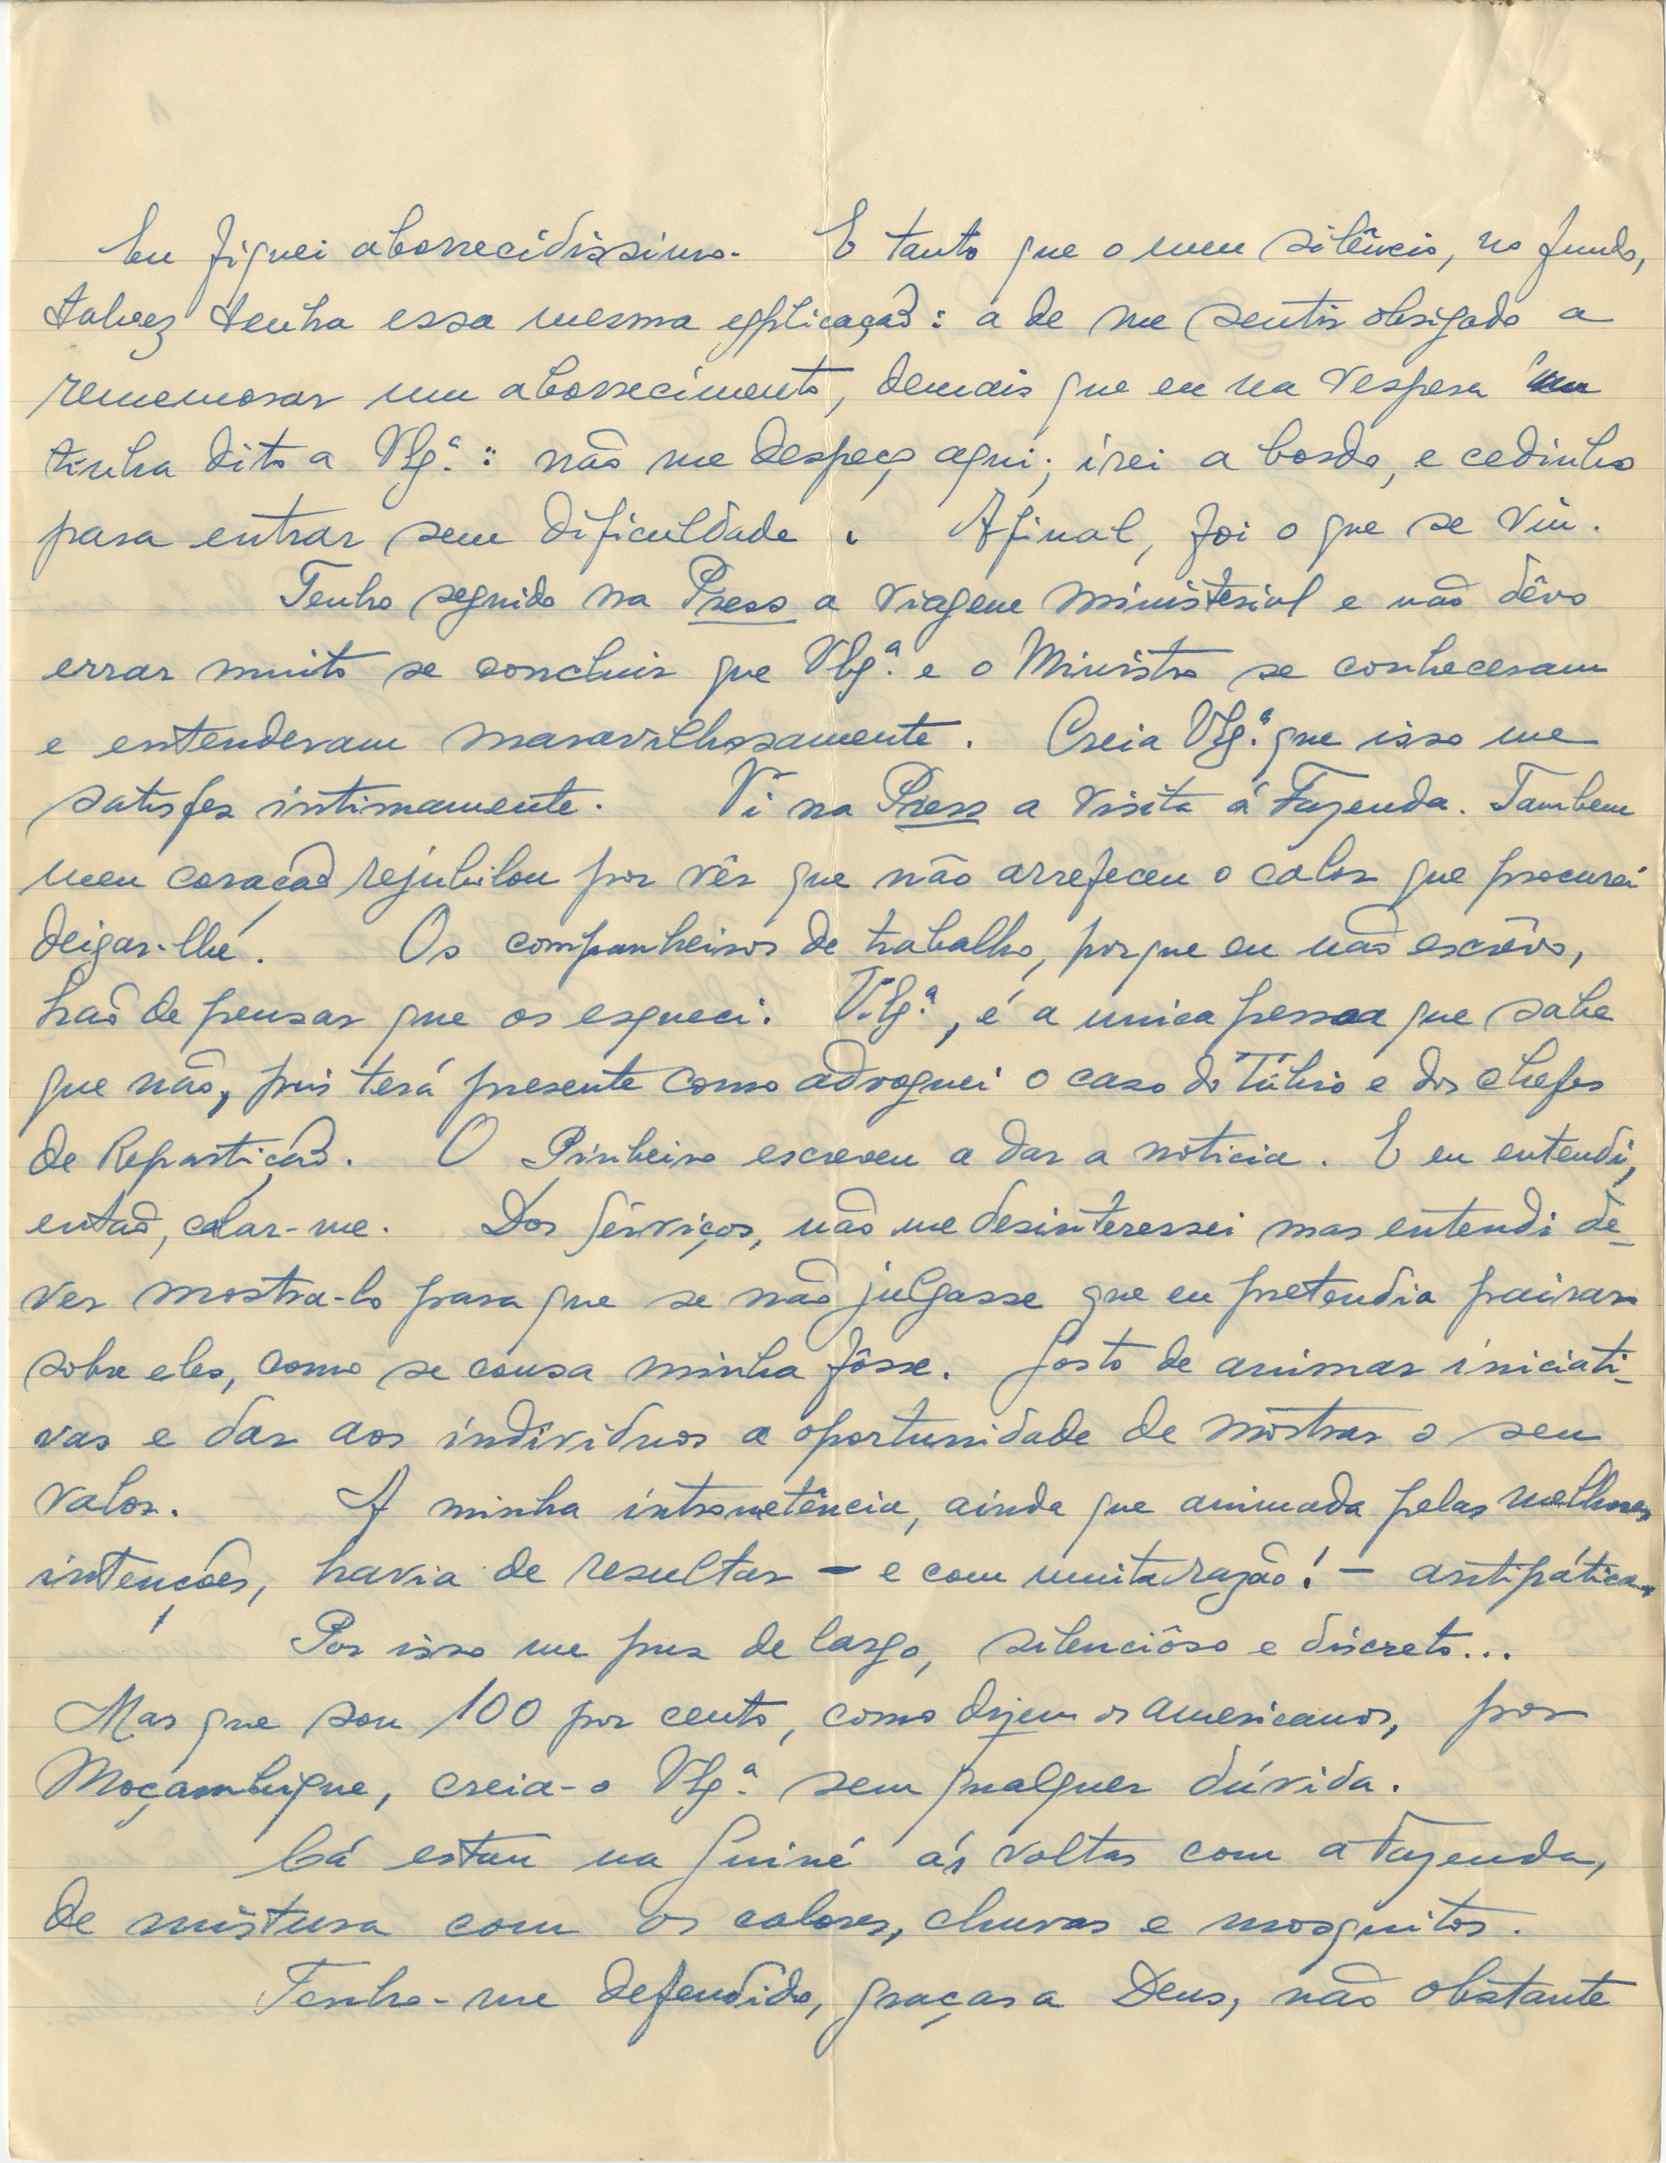 Eu fiquei aborrecidíssimo. E tanto que o meu silêncio, no fundo,
talvez tenha essa mesma explicação: a de me sentir obrigado a
rememorar um aborrecimento, demais que eu na vespera
tinha dito a V. Exª.: não me despeço aqui; irei a bordo, e cedinho
para entrar sem dificuldade. Afinal, foi o que se viu.
Tenho seguido na Press a viagem ministerial e não dêvo
errar muito se concluir que V. Exª. e o Ministro se conheceram
e entenderam maravilhosamente. Creia V. Exª. que isso me
satisfez intimamente. Vi na Press a visita á Fazenda. Tambem
meu coração rejubilou por vêr que não arrefeceu o calor que procurei
deixar-lhe. Os companheiros de trabalho, porque eu não escrêvo,
hão de pensar que os esqueci. V. Exª., é a unica pessoa que sabe
que não, pois terá presente como advoguei o caso do Túlio e dos chefes
de Repartição. O Pinheiro escreveu a dar a noticia. E eu entendi,
então, calar-me. Dos Serviços, não me desinteressei mas entendi de-
ver mostra-lo para que se não julgasse que eu pretendia pairar
sobre eles, como se cousa minha fôsse. Gosto de animar iniciati-
vas e dar aos indivíduos a oportunidade de mostrar o seu
valor. A minha intrometência, ainda que animada pelas melhores
intenções, havia de resultar - e com muita razão! - antipática.
Por isso me pus de largo, silenciôso e discreto...
Mas que sou 100 por cento, como dizem os americanos, por
Moçambique, creia-o V. Exª. sem qualquer dúvida.
Cá estou na Guiné ás voltas com a Fazenda,
de mistura com os calores, chuvas e mosquitos.
Tenho-me defendido, graças a Deus, não obstante